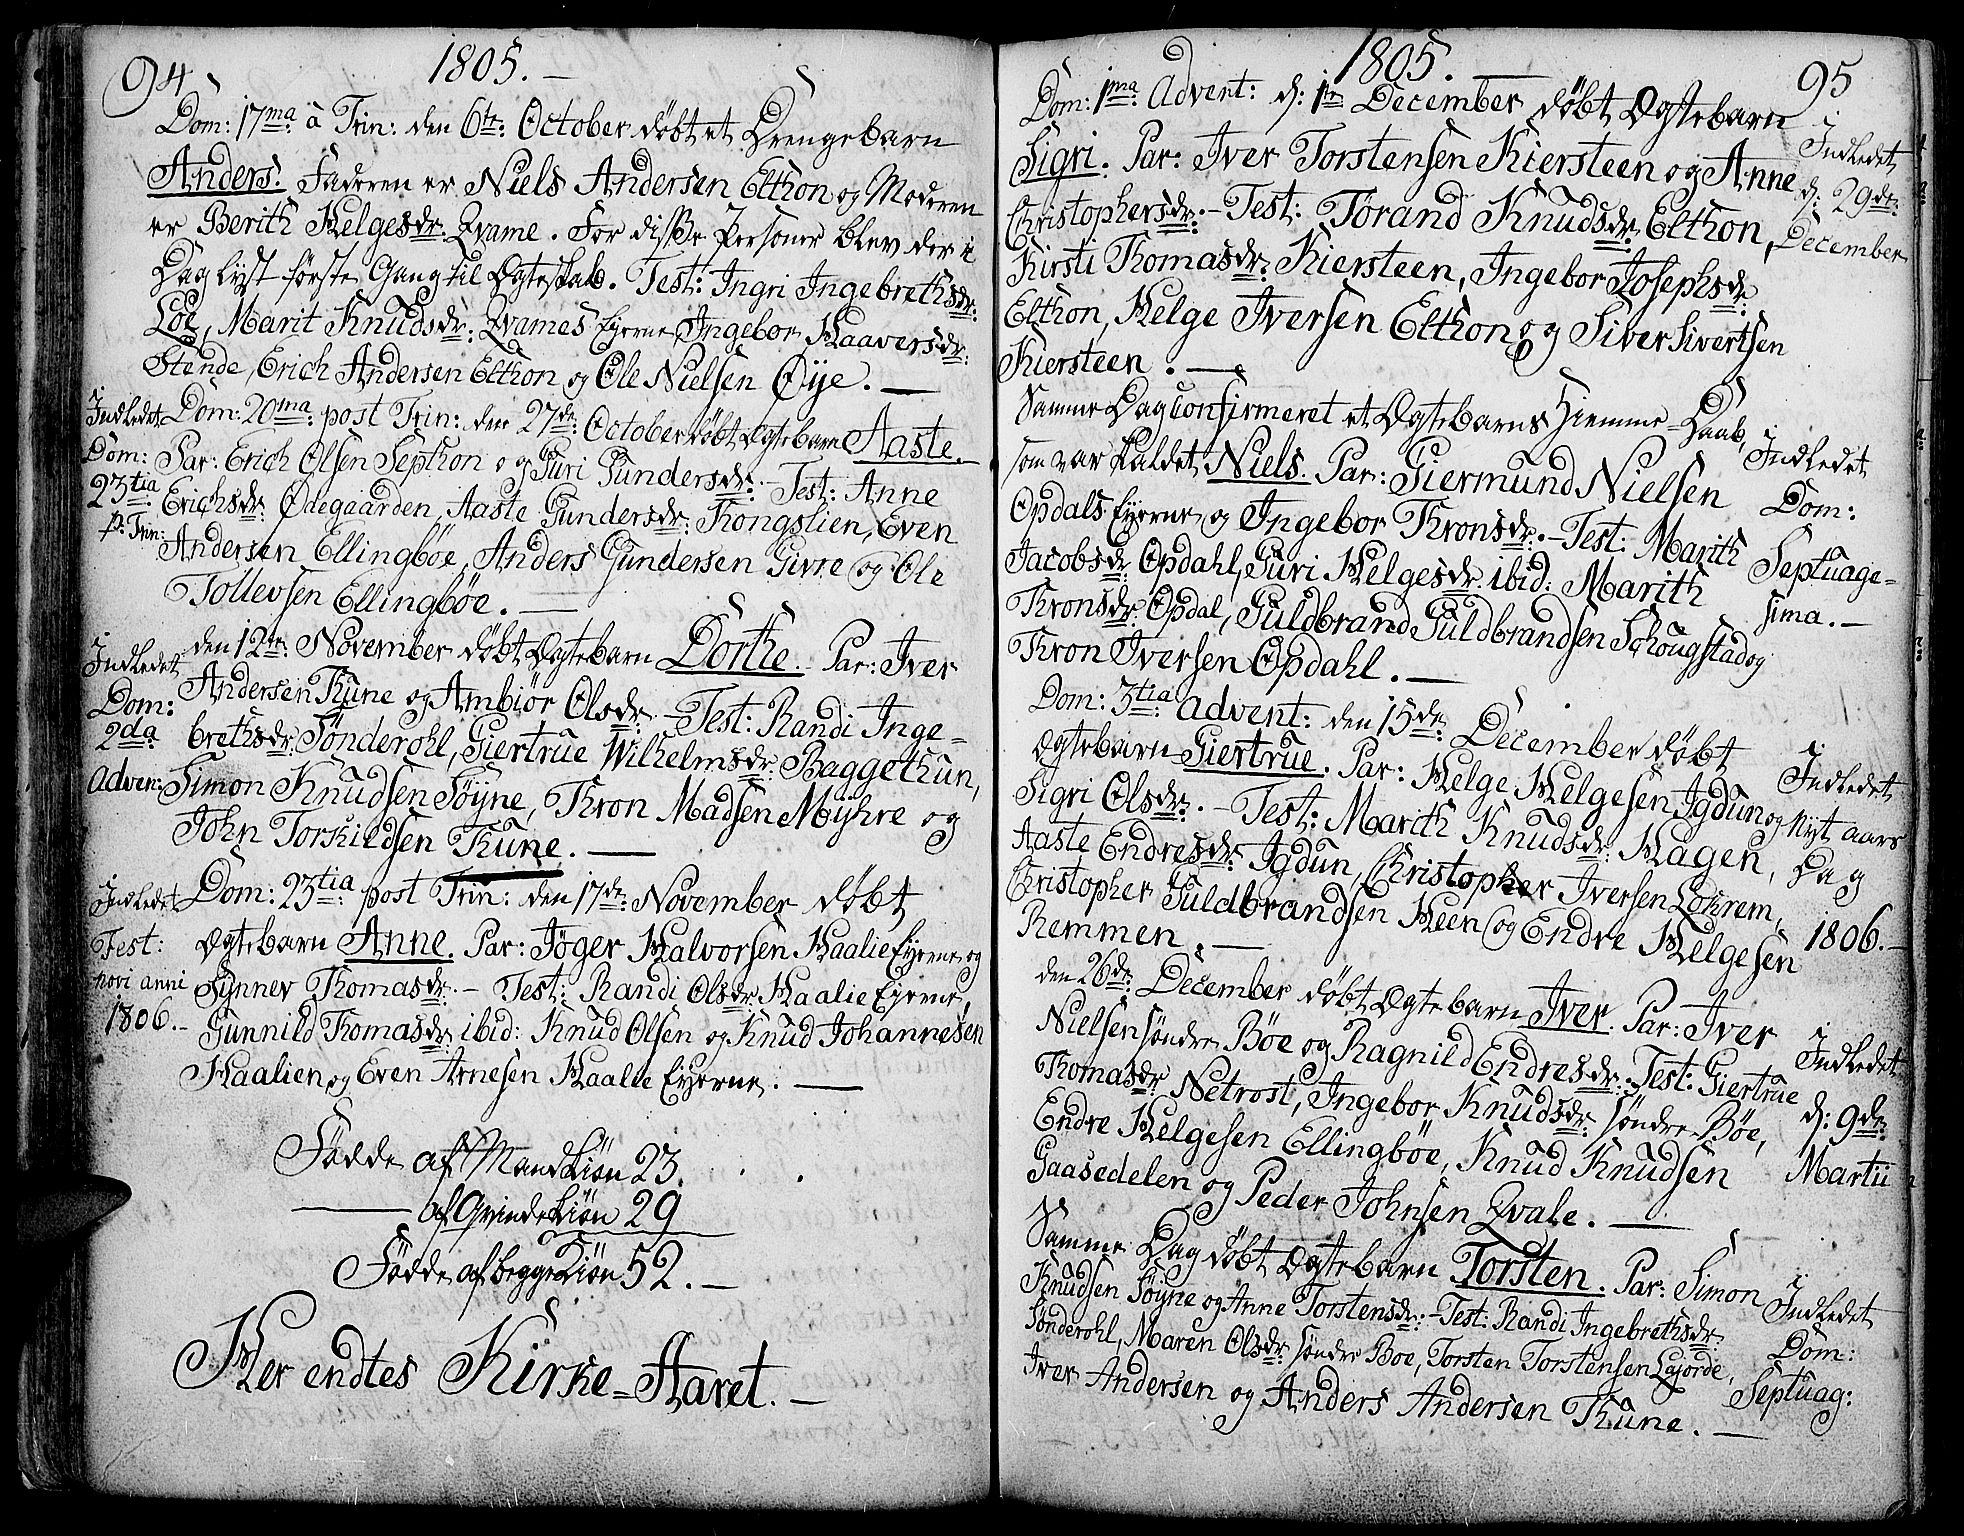 94
1805. —
Dom: 17ma: à Trin: den 6te: October döbt et Drengebarn
Anders. Faderen er Niels Andersen Elthon og Moderen
er Berith Helgesdr. Qvame. For disse Personer blev der i
Dag lyst förste Gang til Ægteskab. Test: Ingri Ingebrethsdr:
Loe, Marit Knudsdr: Qvames Eyerne, Ingebor Haaversdr:
Stende, Erich Andersen Elthon og Ole Nielsen Öye. —
Indledet
Dom:
23tia
p: Trin:
Dom: 20ma: post Trin: den 27de: October döbt Ægtebarn Aaste. —
Par: Erich Olsen Septhon og Guri Gundersdr: - Test: Anne
Erichsdr: Ödegaarden, Aaste Gundersdr: Kongslien, Even
Andersen Ellingböe, Anders Gundersen Givre og Ole
Tollevsen Ellingböe. —
Indledet
Dom:
2da
Adven:
den 12te: November döbt Ægtebarn Dorthe. - Par: Iver
Andersen Thune og Ambiör Olsdr: - Test: Randi Inge=
brethsdr: Sönderohl, Giertrue Wilhelmsdr: Baggethun,
Simon Knudsen Söyne, Thron Madsen Myhre og
John Torkildsen Thune. —
Indledet
Fest:
novi anni
1806. -
Dom: 23tia: post Trin: den 17de: November döbt
Ægtebarn Anne. Par: Jöger Halvorsen Haalie Eyerne, og
Synnev Thomasdr: - Test: Randi Olsdr: Haalie Eyerne,
Gunnild Thomasdr: ibid: Knud Olsen og Knud Johannesen
Haalien og Even Arnesen Haalie Eyerne. —
Födde af Mandkiön 23.
— af Qvindekiön 29
Födde af begge Kiön 52. —
Her endtes Kirke=Aaret. —
1805. —
95
Dom: 1ma: Advent: d: 1te December döbt Ægtebarn
Sigri. Par: Iver Torstensen Kiersteen og Anne
Christophersdr: - Test: Torand Knudsdr: Elthon,
Kirsti Thomasdr: Kiersteen, Ingebor Josephsdr:
Elthon, Helge Iversen Elthon og Siver Sivertsen
Kiersteen. —
Indledet
d: 29de:
December
Samme Dag confirmeret et Ægtebarns Hiemme=Daab,
som var kaldet Niels. Par: Giermund Nielsen
Opdals Eyerne, og Ingebor Thronsdr: - Test: Marith
Jacobsdr: Opdahl, Guri Helgesdr: ibid: Marith
Thronsdr: Opdal, Guldbrand Guldbrandsen Schougstad og
Thron Iversen Opdahl. —
Indledet
Dom:
Septuage=
sima. —
Dom: 3tia: Advent: den 15de: December döbt
Ægtebarn Giertrue. Par: Helge Helgesen Igdun og
Sigri Olsdr: - Test: Marith Knudsdr: Hagen,
Aaste Endresdr: Igdun, Christopher Iversen Lohrem,
Christopher Guldbrandsen Heen og Endre Helgesen
Remmen. —
Indledet
Nyt aars
Dag
1806. —
den 26de: December döbt Ægtebarn Iver. Par: Iver
Nielsen söndre Böe og Ragnild Endresdr: Test: Giertrue
Thomasdr: Netrost, Ingebor Knudsdr: söndre Böe,
Endre Helgesen Ellingböe, Knud Knudsen
Gaasedelen og Peder Johnsen Qvale. —
Indledet
d: 9de:
Martii
Samme Dag döbt Ægtebarn Torsten. Par: Simon
Knudsen Söyne og Anne Torstensdr: - Test: Randi Ingebrethsdr:
Sönderohl, Maren Olsdr: söndre Boe, Torsten Torstensen Lajorde,
Iver Andersen og Anders Andersen Thune. —
Indledet
Dom:
Septuag: